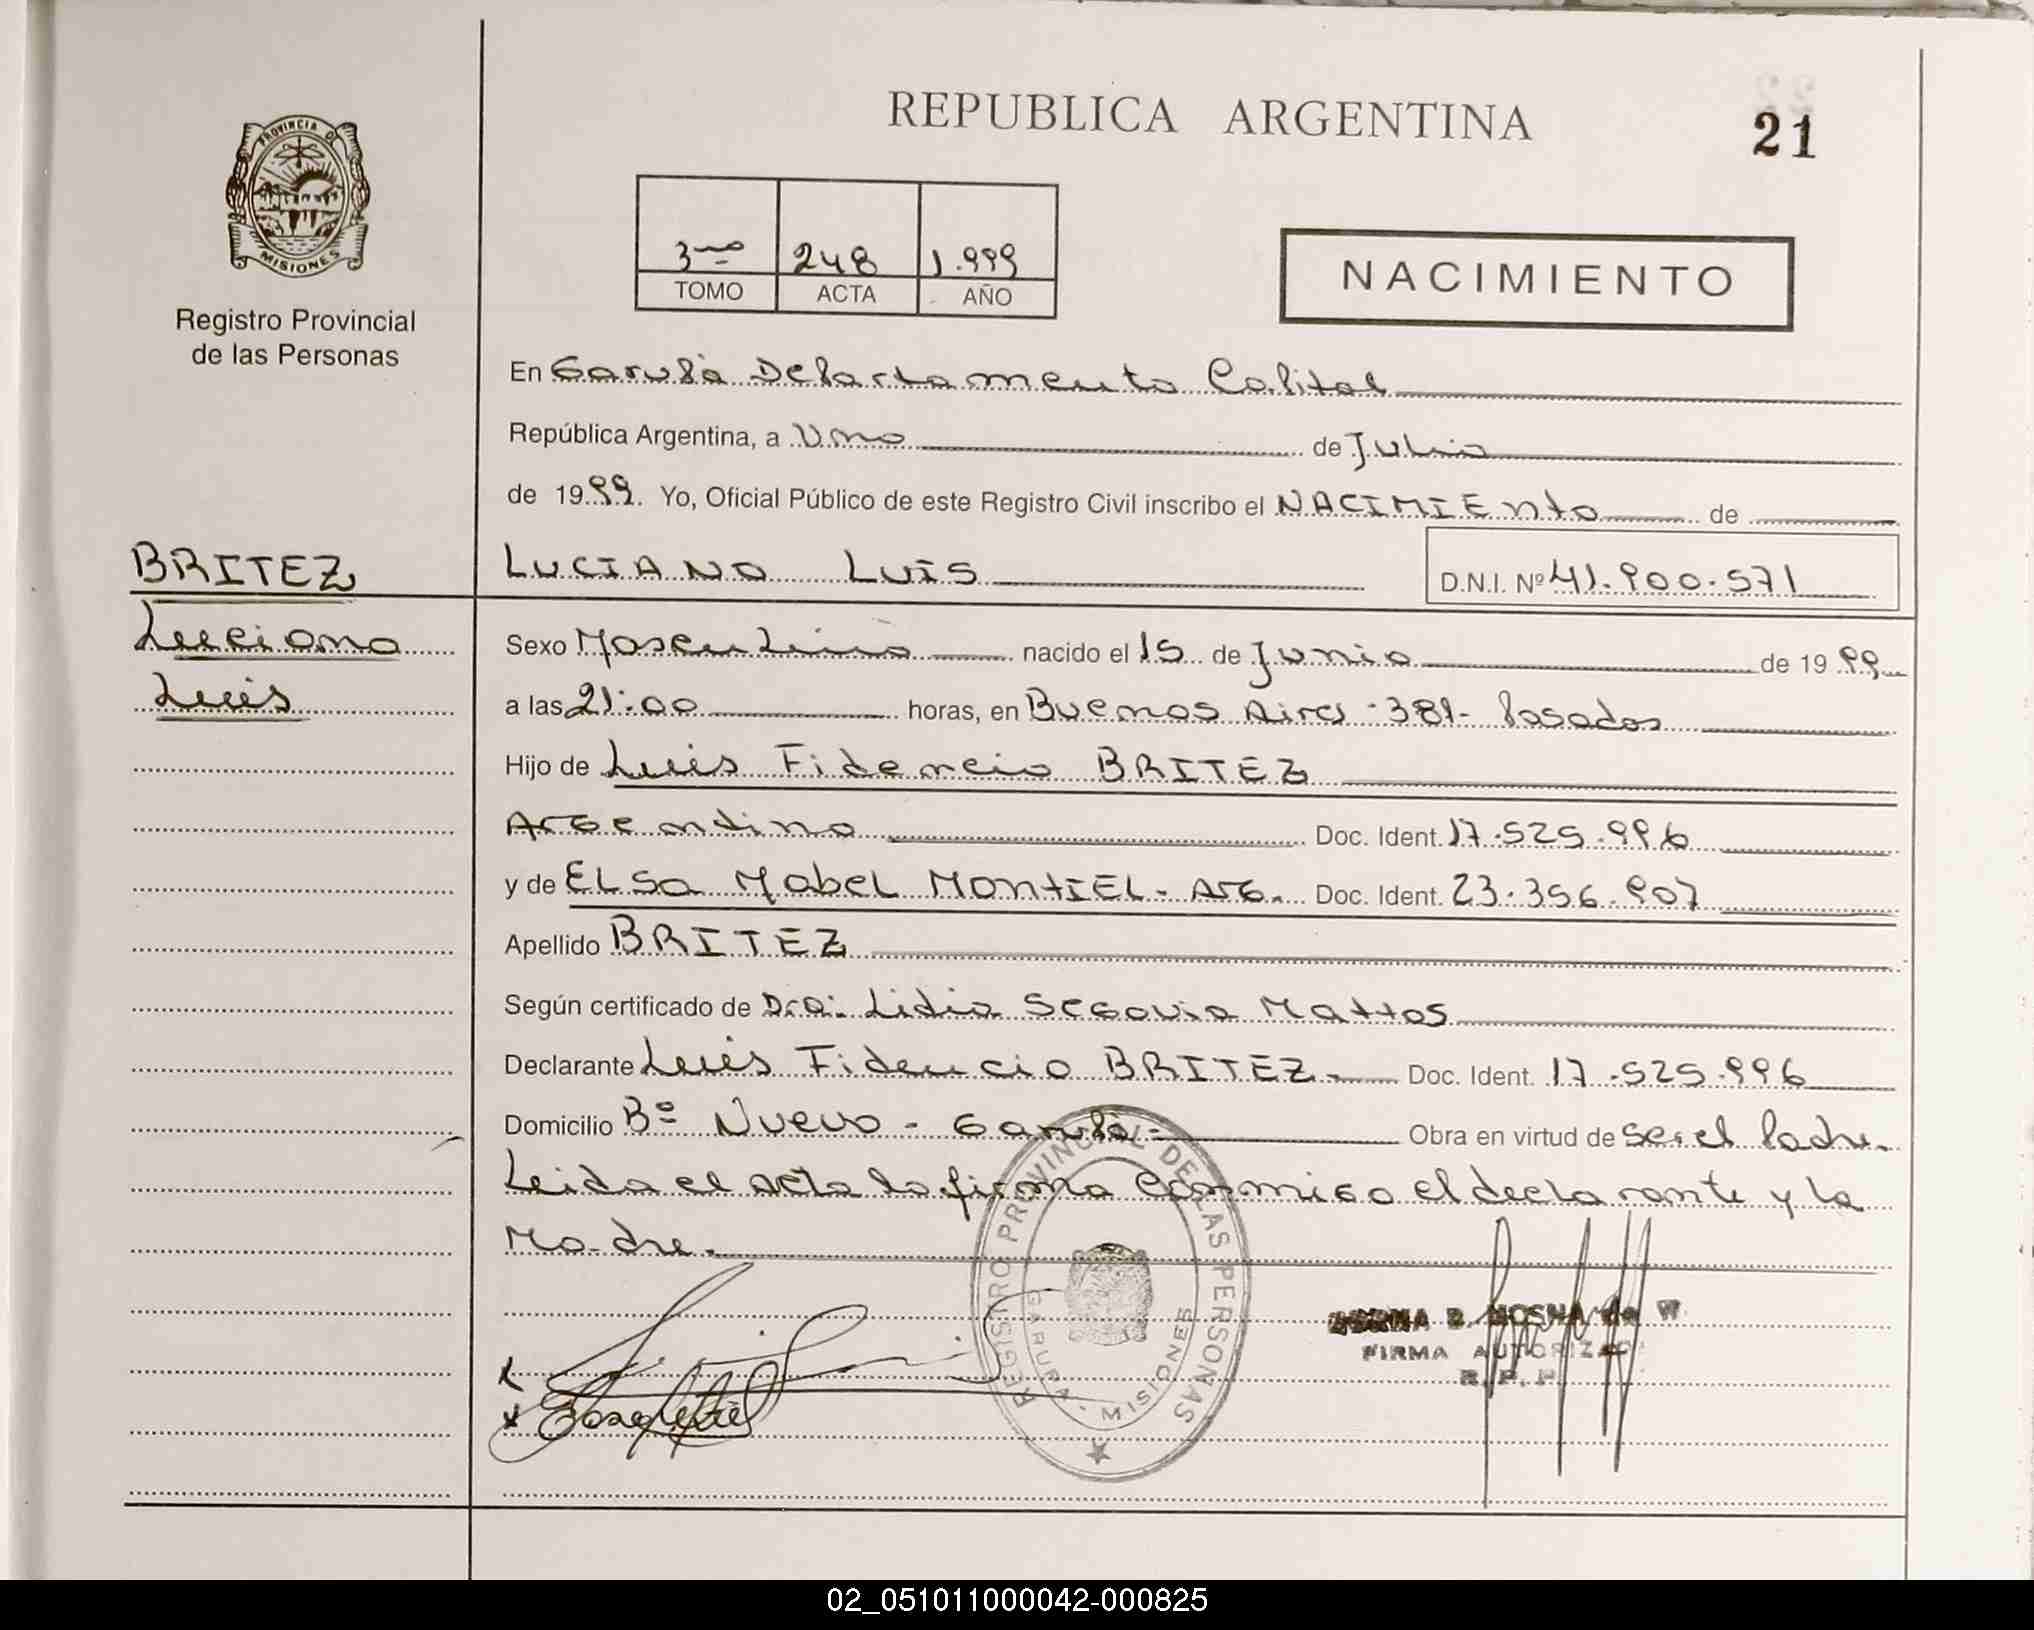 REPUBLICA ARGENTINA
21
PROVINCIA DE
MISIONES
Registro Provincial
de las Personas
3ro 248 1.999
TOMO ACTA AÑO
NACIMIENTO
En Garupá Departamento Capital
República Argentina, a Uno de Julio
de 1999. Yo, Oficial Público de este Registro Civil inscribo el NACIMIENto de
BRITEZ
Luciano
Luis
LUCIANO LUIS
D.N.I. Nº 41.900.571
Sexo Masculino nacido el 15 de Junio de 1999
a las 21:00 horas, en Buenos Aires -381- Posadas
Hijo de Luis Fidencio BRITEZ
Argentino Doc. Ident. 17.525.996
y de ELSa Mabel MONtIEL - Arg. Doc. Ident. 23.356.907
Apellido BRITEZ
Según certificado de Dra: Lidia Segovia Mattos
Declarante Luis Fidencio BRITEZ - Doc. Ident. 17.525.996
Domicilio Bº Nuevo - Garupá - Obra en virtud de ser el Padre.
Leida el acta la firma conmigo el declarante y la
Madre.
REGISTRO PROVINCIAL DE LAS PERSONAS
GARUPA - MISIONES
NORMA B. MOSNA de W.
FIRMA AUTORIZADA
R.P.P.
02_051011000042-000825